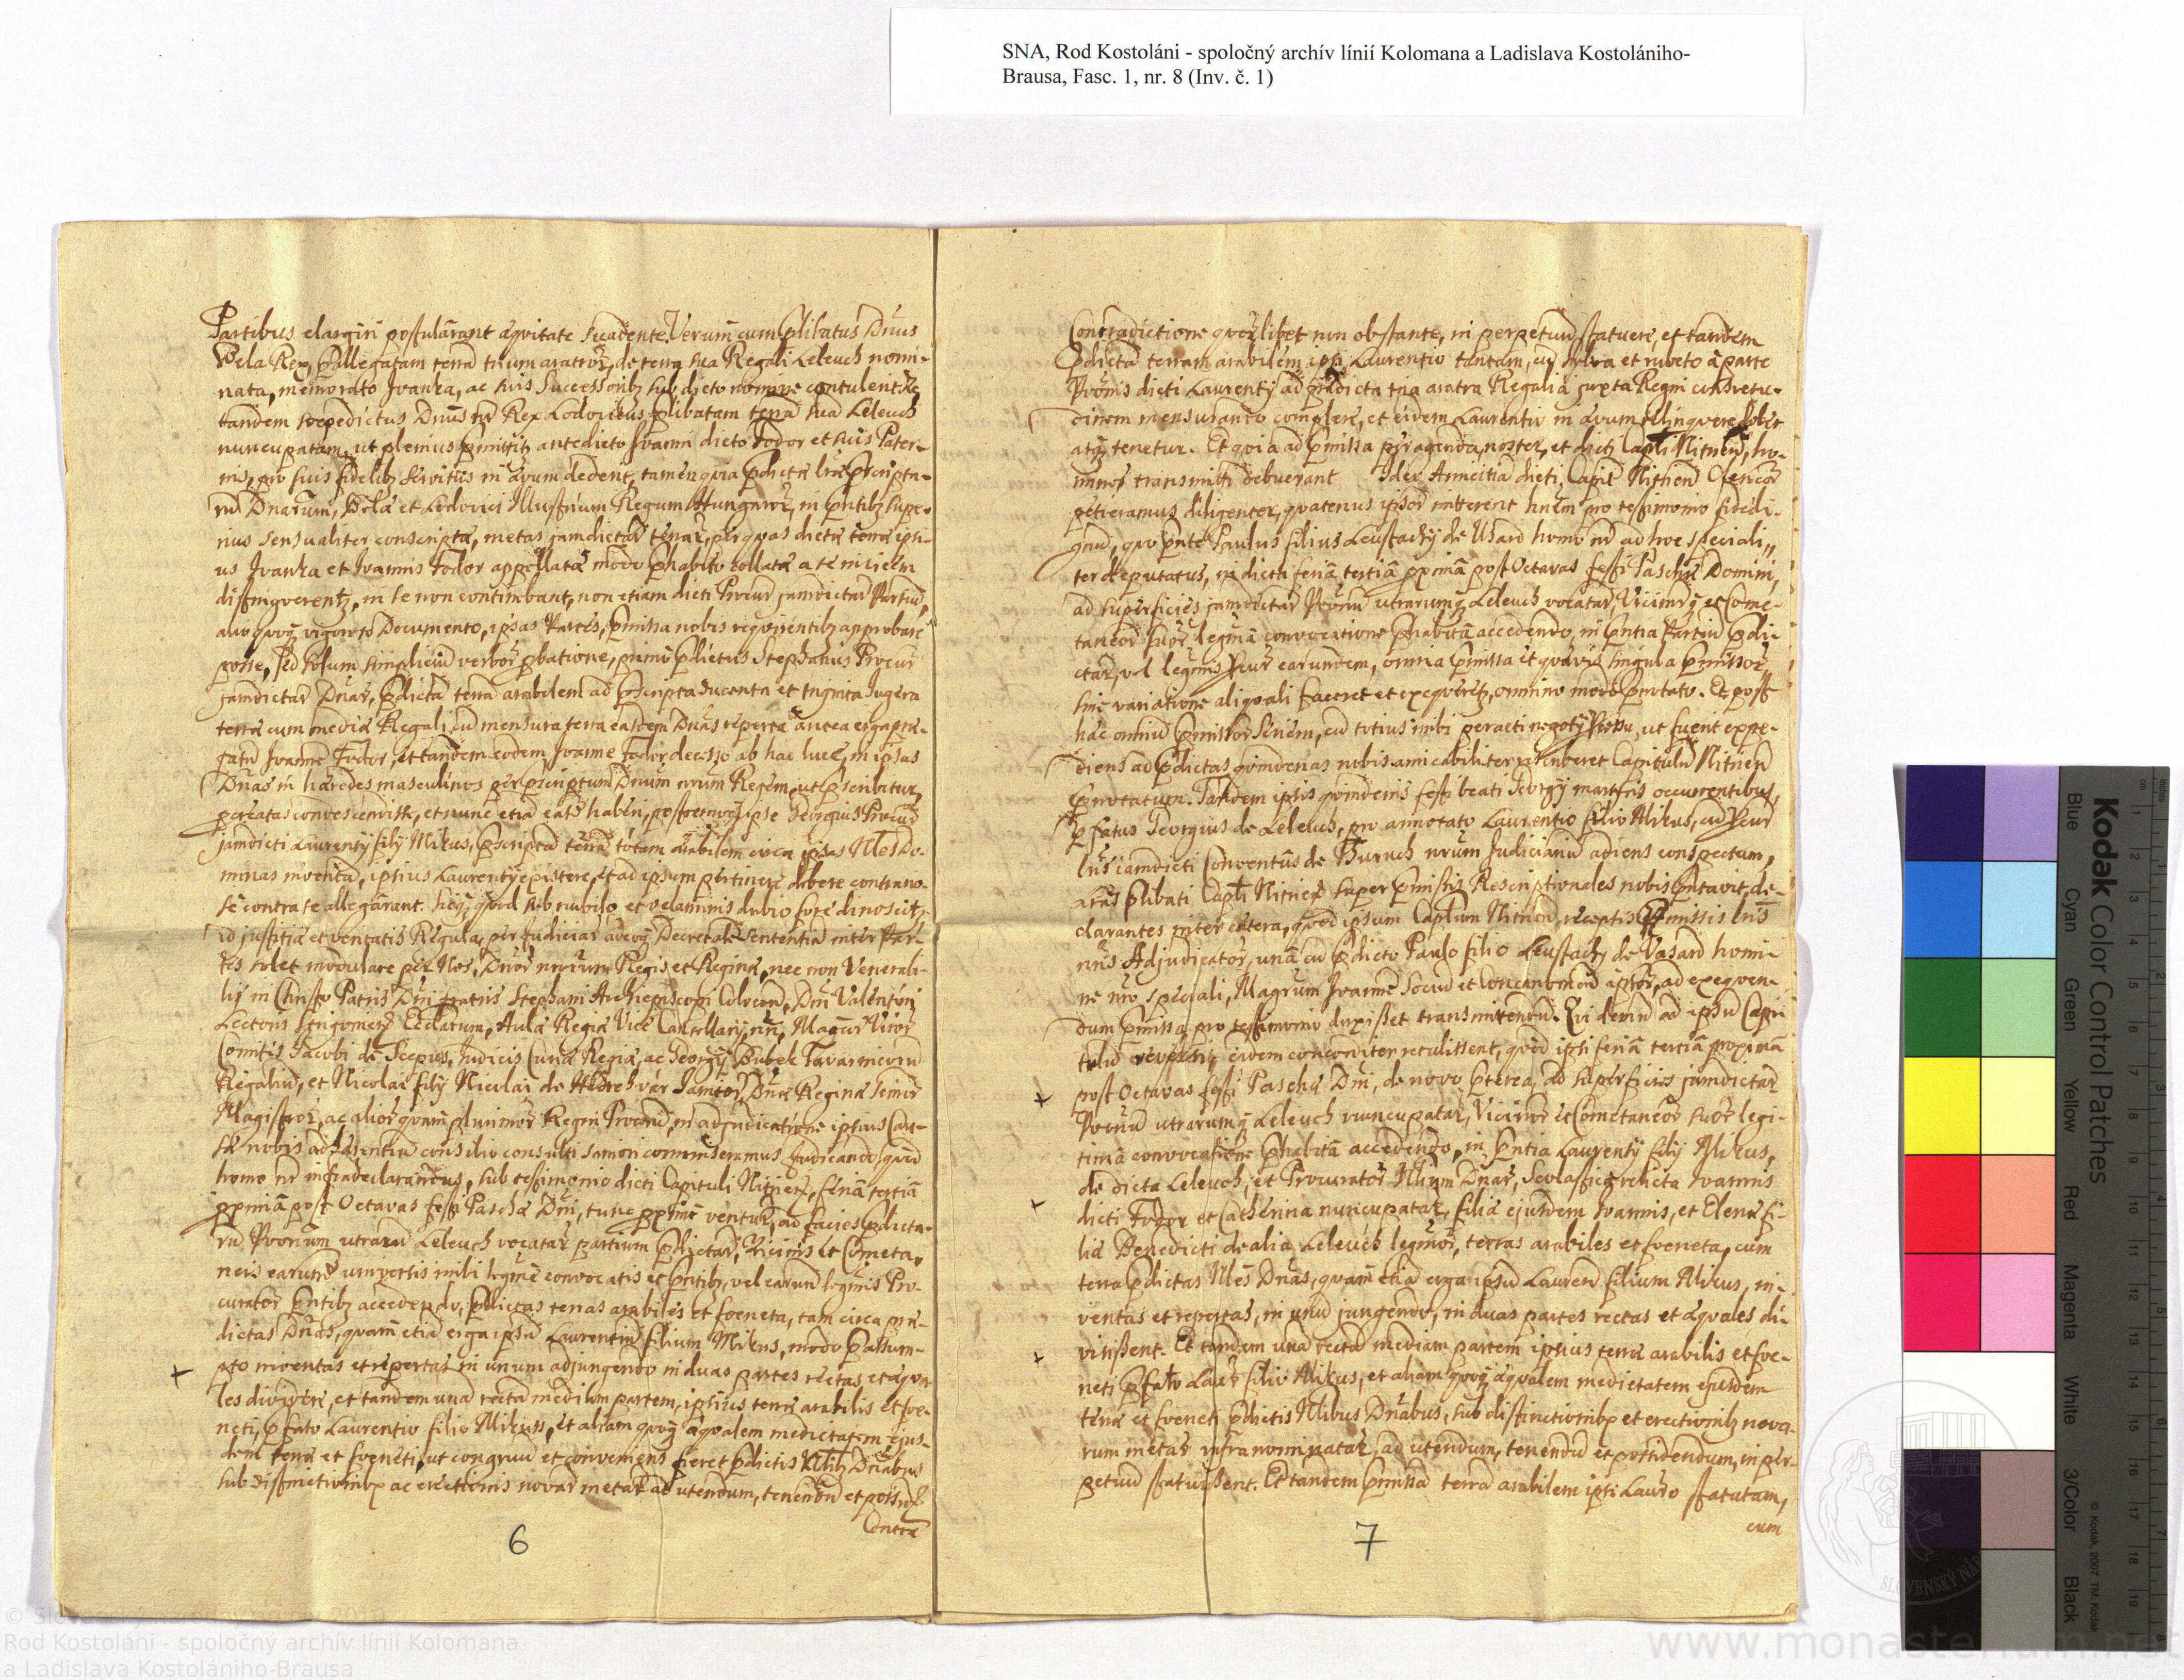 SNA, Rod Kostoláni - spoločný archív línií Kolomana a Ladislava Kostolániho-
Brausa, Fasc. 1, nr. 8 (Inv. č. 1)
Partibus elargiri postularant aequitate suadente. Verum cum plibatus Dnus
Bela Rex, pallegatam terra trium aratror, de terra sua Regali Leleuch nomi-
nata, memorato Ivanka, ac suis Successoribz sub dicto nomine contulerit, Et
tandem saepedictus Dnus nr Rex Lodovicus plibatam terra sua Leleuch
nuncupatam, ut plenius pmittitz antedicto Ivanni dicto Fodor et suis Pater-
nis, pro suis fidelibz servitiis in aevum dederit, tamen quia pdictae lrae pscripto-
ru Dnorum, Bela et Lodovici Illustrium Regum Hungaror, in pntibz supe-
rius sensualiter conscripta, metas jamdictar terrar, per quas dictae terrae ipsi-
us Ivanka et Ivannis Fodor appellatae modo phabito collatae a se invicem
distinguerentz, in se non continebant, non etiam dicti Procur jamdictar Partiu,
alio quovis vigoroso Documento, ipsas Partes, pmissa nobis requirentibz approbare
posse, sed solum simplicium verbor pbatione, primo pdictus Stephanus Procur
jamdictar Dnar, pdicta terra arabilem ad pscripta ducenta et triginta Jugera
terrae cum media Regali cu mensura terra easdem Dnas reperta antea erga prae-
fatu Ivanne Fodor, et tandem eodem Ivanne Fodor decesso ab hac luce, in ipsas
Dnas in haeredes masculinos per pscriptum Dnum nrum Regem, ut pscribitur,
pcreatas condescendisse, et nunc etia eas haberi, postremoqz ipse Georgius Procur
jamdicti Laurentÿ filÿ Mikus, pscripta terra totam arabilem circa ipsas Nles Do-
minas inventa, ipsius Laurentÿ existere, et ad ipsum pertinere debere contrario-
se contra se allegarant. Sicqz, quod sub nubilo et velaminis dubio fore dinoscitz,
id justitiae et veritatis Regula, per Judiciar adeoqz Decretale Sententia inter Par-
tes solet modulare per Nos, Dnor nrorum Regis et Reginae, nec non Venerabi-
liu in Christo Patris Dni fratris Stephani Archiepiscopi Colocen, Dni Valentini
Lectoris Strigonien Ecclarum, Aulae Regiae Vice Cancellarÿ nri, Magcor Viror
Comitis Jacobi de Scepus, Judicis Curiae Regiae, ac Georgÿ Bubek Tavarnicoru
Regaliu, et Nicolai filÿ Nicolai de Hedrehvár Janitor Dnae Reginae Simir
Magistror, ac alior quam plurimor Regni Proceru, in adjudicatione ipsius Cau-
sae nobis adhaerentiu consilio consulti similiori commiseramus Judicando, quod
homo nr infradeclarandus, sub testimonio dicti Capituli Nitrien, feria tertia
pxima post Octavas festi Paschae Dni, tunc pxime ventur, ad facies pdicta-
ru Pornum utraru Leleuch vocatar partium pdictar, Vicinis et Cometa-
neis earunde universis inibi legitime convocatis et pntibz, vel earum legitimis Pro-
curator pntibz accedendo, pdictas terras arabiles et foeneta, tam circa prae-
dictas Dnas, quam etia erga ipsu Laurentiu filium Mikus, modo passum-
pto inventas et repertas in unum adjungendo in duas partes rectas et aequa-
les dividere, et tandem una recta mediam partem, ipsius terrae arabilis et foe-
neti, pfato Laurentio filio Mikus, et aliam quoqz aequalem medietatem ejus-
dem terrae et foeneti, ut congruu et conveniens fieret pdictis Nlibz Dnabus
sub distinctionibz ac erectionis novar metar ad utendum, tenendu et possidz
Contra
6
Contradictione quorlibet non obstante, in perpetuu statuere, et tandem
pdicta terram arabilem ipsi Laurentio tantam, cu sylva et rubeto à parte
Pornis dicti Laurentÿ ad pradicta tria aratra Regalia juxta Regni consvetu-
dinem mensurando complere, et eidem Laurentio in aevum relinquere debet
atqz tenetur. Et quia ad pmissa peragenda, noster, et dicti Capli Nitrien, ho-
mines transmitti debuerant Ideo Amicitia dicti, Capit Nitrien Oferior
petieramus diligenter, quatenus ipsor mitterent hnem pro testimonio fidedi-
gnu, quo pnte Paulus filius Leustachÿ de Usard homo nr ad hoc speciali
ter deputatus, in dicta feria tertia pxima post Octavas festi Paschae Domini,
ad superficies jamdictar Pornu utrarumqz Leleuch vocatar, Vicinisqz et Come-
taneor suor legitima convocatione phabita accedendo, in pntia Partiu pdi-
ctar, vel legitimis Procur earundem, omnia pmissa et quaevis singula pmissor,
sine variatione aliquali faceret et exequeretz, omnino modo pnotato. Et post
hac omniu pmissor seriem, cu totius inibi peracti negotÿ serie, ut fuerit expe-
diens ad pdictas quindenas nobis amicabiliter rescriberet Capitulu Nitrien
pnotatum. Tandem ipsis quindenis festi beati Georgÿ martiris occurrentibus,
pfatus Georgius de Leleuch, pro annotato Laurentio filio Mikus, cu Procur
lris jamdicti Conventus de Thuruch nrum Judiciariu adiens conspectum,
aras plibati Capli Nitrien super pmissis Rescriptionales nobis pntavit, de-
clarantes inter caetera, quod ipsum Capitulum Nitrien, receptis pmissis lris
nris Adjudicator, una cu pdicto Paulo filio Leustachÿ de Vasard homi-
ne nro speciali, Magrum Ivanne Sociu et Concanonicu ipsor, ad exequen-
dum pmissa pro testimonio duxisset transmittendu. Qui demu ad ipsu Capi
tulu reversi, eidem concorditer retulissent, quod ipsi feria tertia proxima
post Octavas festi Paschae Dni, de novo pterea, ad superficies jamdictar
Pornu utrarumqz Leleuch nuncupatar, Vicinor et Cometaneor suor legi-
tima convocatione phabita accedendo, in pntia Laurentÿ filÿ Mikus,
de dicta Leleuch, et Procurator Nlium Dnar, Scolastica relicta Ivannis
dicti Fodor et Catherina nuncupatar, filiae ejusdem Ivannis, et Elenae fi-
lia Benedicti de alia Leleuch legitimor, terras arabiles et foeneta, cum
terra pdictas Nles Dnas, quam etia erga ipsu Lauren filium Mikus, in-
ventas et repertas, in unu jungendo, in duas partes rectas et aequales di-
visissent. Et tandem una recta mediam partem ipsius terrae arabilis et foe-
neti pfato Laur filio Mikus, et aliam quoqz aequalem medietatem ejusdem
terrae et foeneti pdictis Nlibus Dnabus, sub distinctionibz et erectionibz nova-
rum metar infra nominatar, ad utendum, tenendu et possidendum, in per-
petuu statuissent. Et tandem pmissa terra arabilem ipsi Lauro statutam,
cum
7
Kodak Color Control Patches
© Kodak, 2007 TM: Kodak
Blue Cyan Green Yellow Red Magenta White 3/Color Black
Rod Kostoláni - spoločný archív línií Kolomana
a Ladislava Kostolániho-Brausa
www.monasterium.net